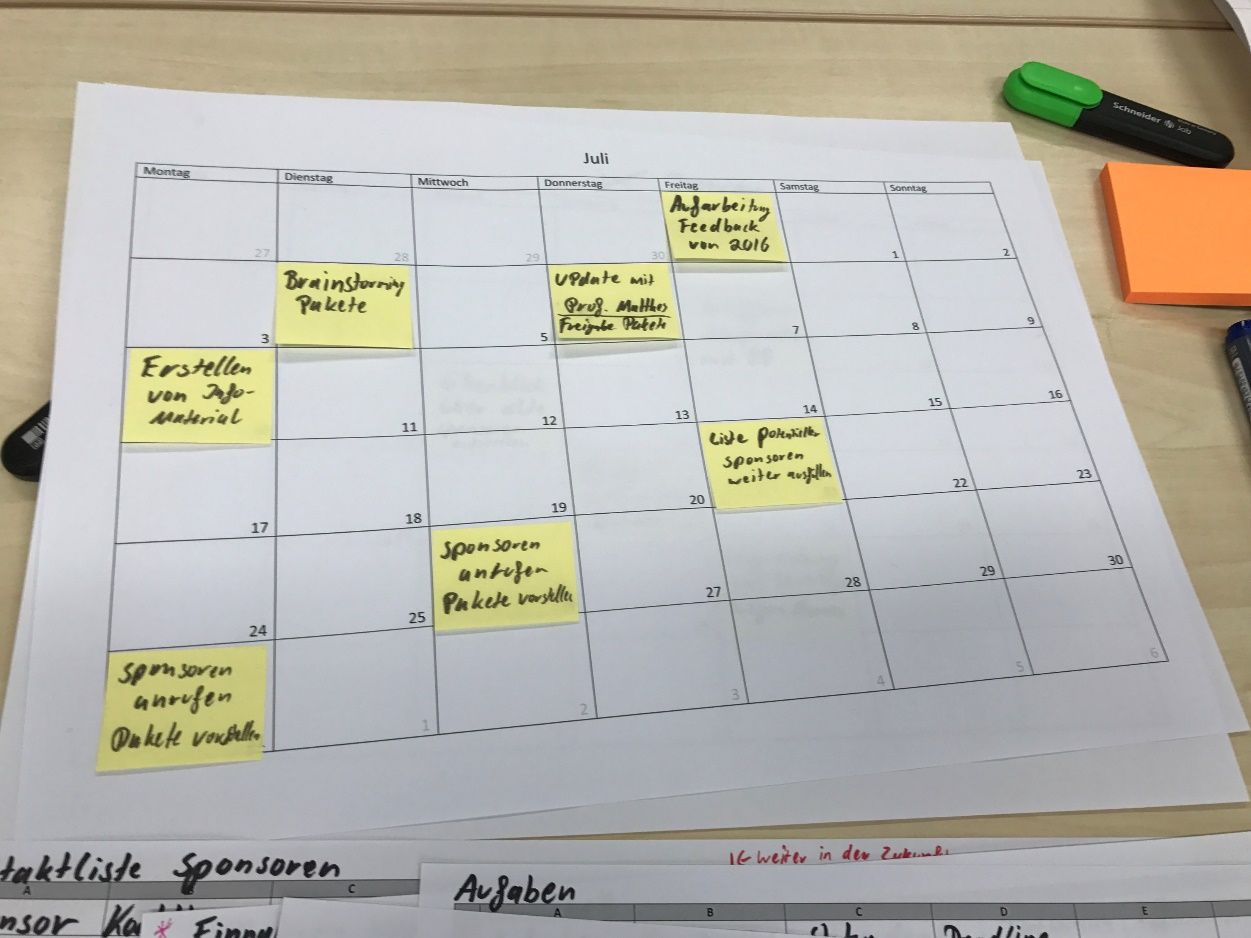 Juli
Montag Dienstag Mittwoch Donnerstag Freitag Samstag Sonntag
27 28 29 30
Aufarbeitung
Feedback
von 2016
1 2
3
Brainstorming
Pakete
5
Update mit
Prof. Matthes
Freigabe Pakete
7 8 9
Erstellen
von Info-
Material
11 12 13 14 15 16
17 18 19 20
Liste potentieller
Sponsoren
weiter ausfüllen
22 23
24 25
Sponsoren
anrufen
Pakete vorstellen
27 28 29 30
Sponsoren
anrufen
Pakete vorstellen
1 2 3 4 5 6
Schneider Job
taktliste Sponsoren
A C
nsor
weiter in der
Aufgaben
A B C D E
Deadline